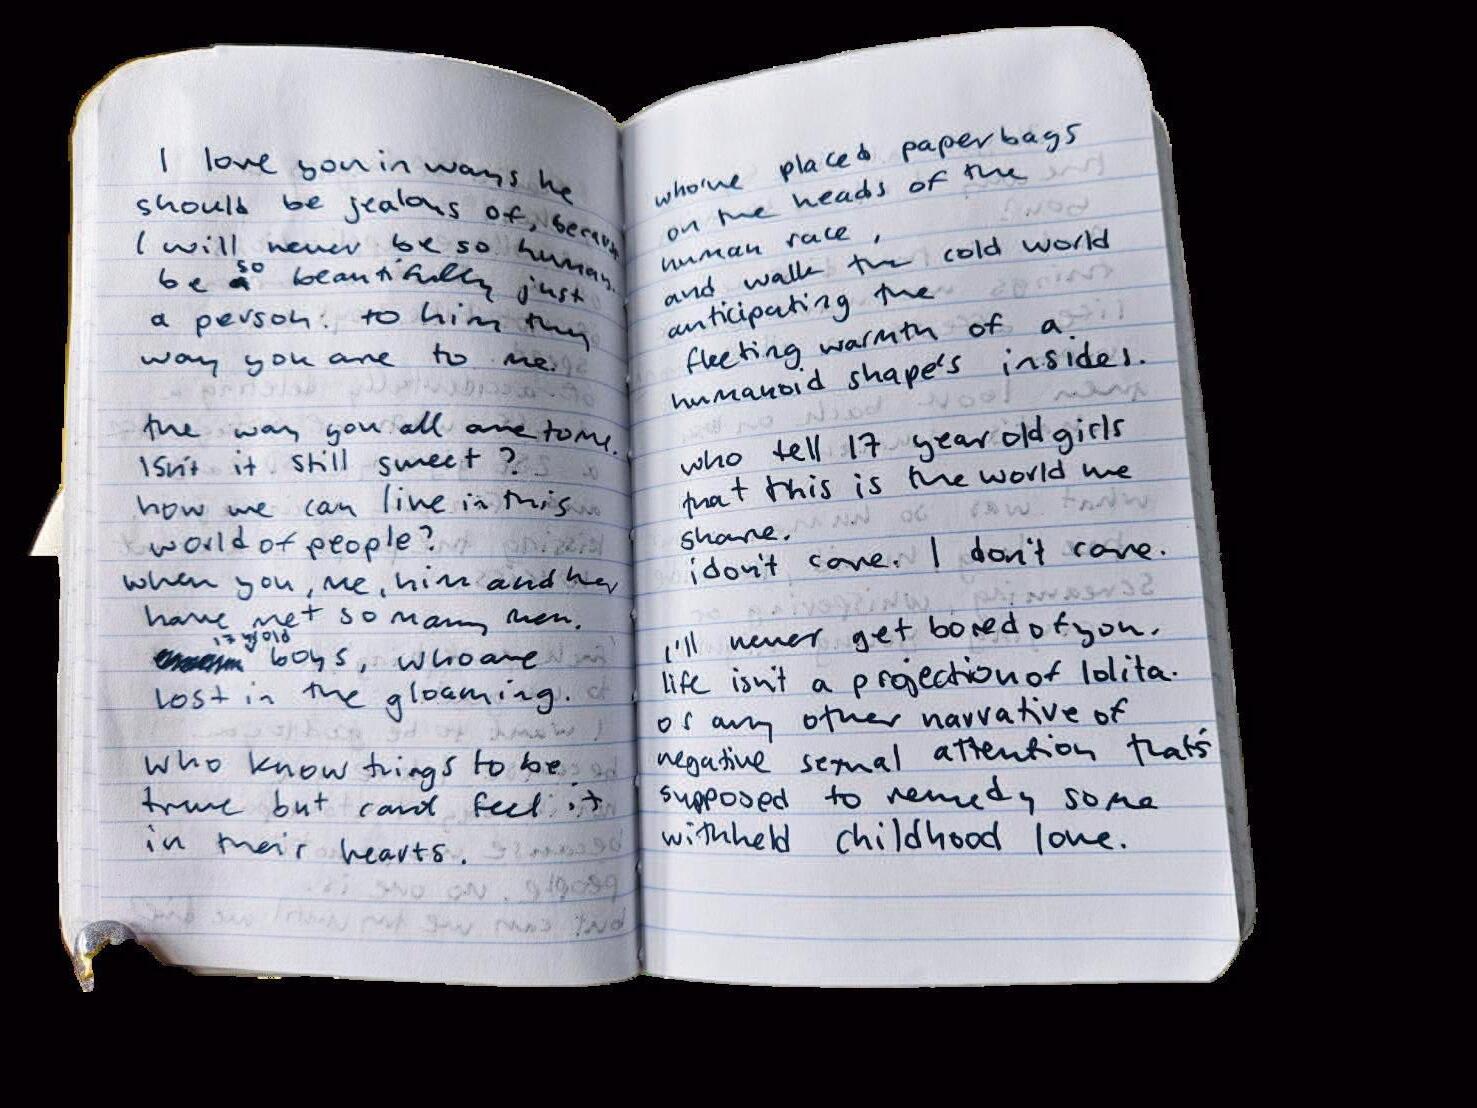 I love you in ways he
should be jealous of, because
I will never be so human.
be so beautifully just
a person. to him they
way you are to me.
the way you all are to me.
Isn't it still sweet?
how we can live in this
world of people?
when you, me, him and her
have met so many men.
17 y old
boys, who are
lost in the gloaming.
who know things to be
true but cand feel it
in their hearts.
who've placed paperbags
on the heads of the
human race,
and walk the cold world
anticipating the
fleeting warmth of a
humanoid shape's insides.
who tell 17 year old girls
that this is the world we
share.
i don't care. I don't care.
i'll never get bored of you.
life isn't a projection of lolita.
or any other narrative of
negative sexual attention that's
supposed to remedy some
withheld childhood love.